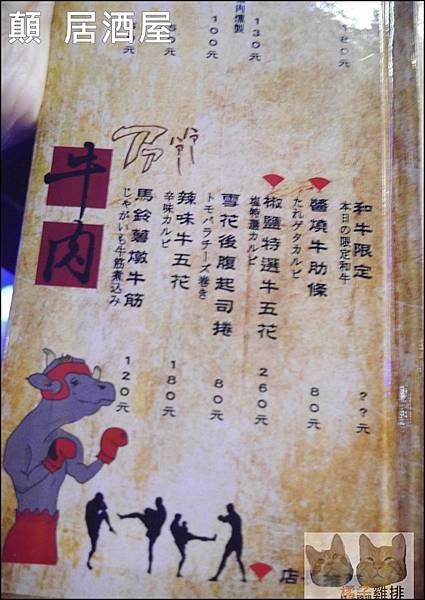 顛 居酒屋
肉燻製
130元
100元
牛肉
和牛限定
本日の限定和牛
??元
醬燒牛肋條
たれゲタカルビ
80元
椒鹽特選牛五花
塩特選カルビ
260元
雪花後腹起司捲
トモバラチーズ巻き
80元
辣味牛五花
辛味カルビ
180元
馬鈴薯燉牛筋
じゃがいも牛筋煮込み
120元
店
橘子雞排